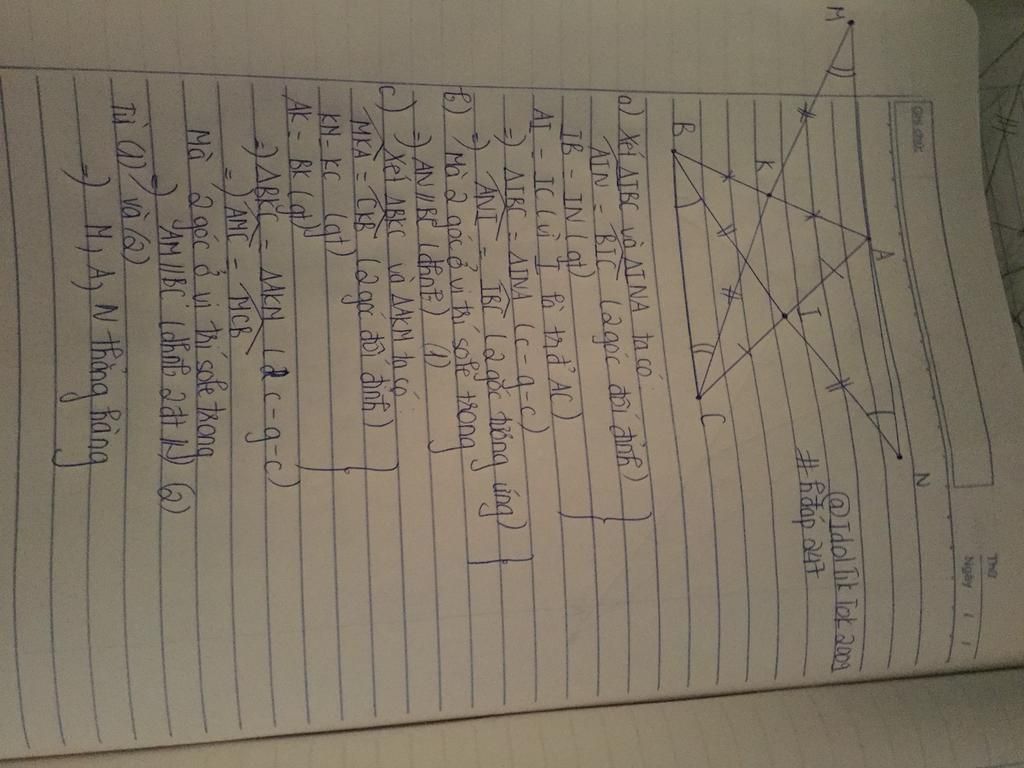 Thứ
Ngày / /
N
@IdolTikTok2001
#hđáp247
M
A
K
I
B
C
a) Xét ΔIBC và ΔINA ta có:
AIN = BIC (2 góc đối đỉnh)
IB = IN (gt)
AI = IC (vì I là trđ AC)
=) ΔIBC = ΔINA (c-g-c)
b) =) ANI = IBC (2 góc tương ứng)
Mà 2 góc ở vị trí sole trong
=) AN//BC (đhnb) (1)
c) Xét ΔBKC và ΔAKM ta có
MKA = CKB (2 góc đối đỉnh)
KM = KC (gt)
AK = BK (gt)
=) ΔBKC = ΔAKM (c-g-c)
=) AMC = MCB
Mà 2 góc ở vị trí sole trong
=) AM//BC (đhnb 2đt //) (2)
Từ (1) và (2)
=) M, A, N thẳng hàng